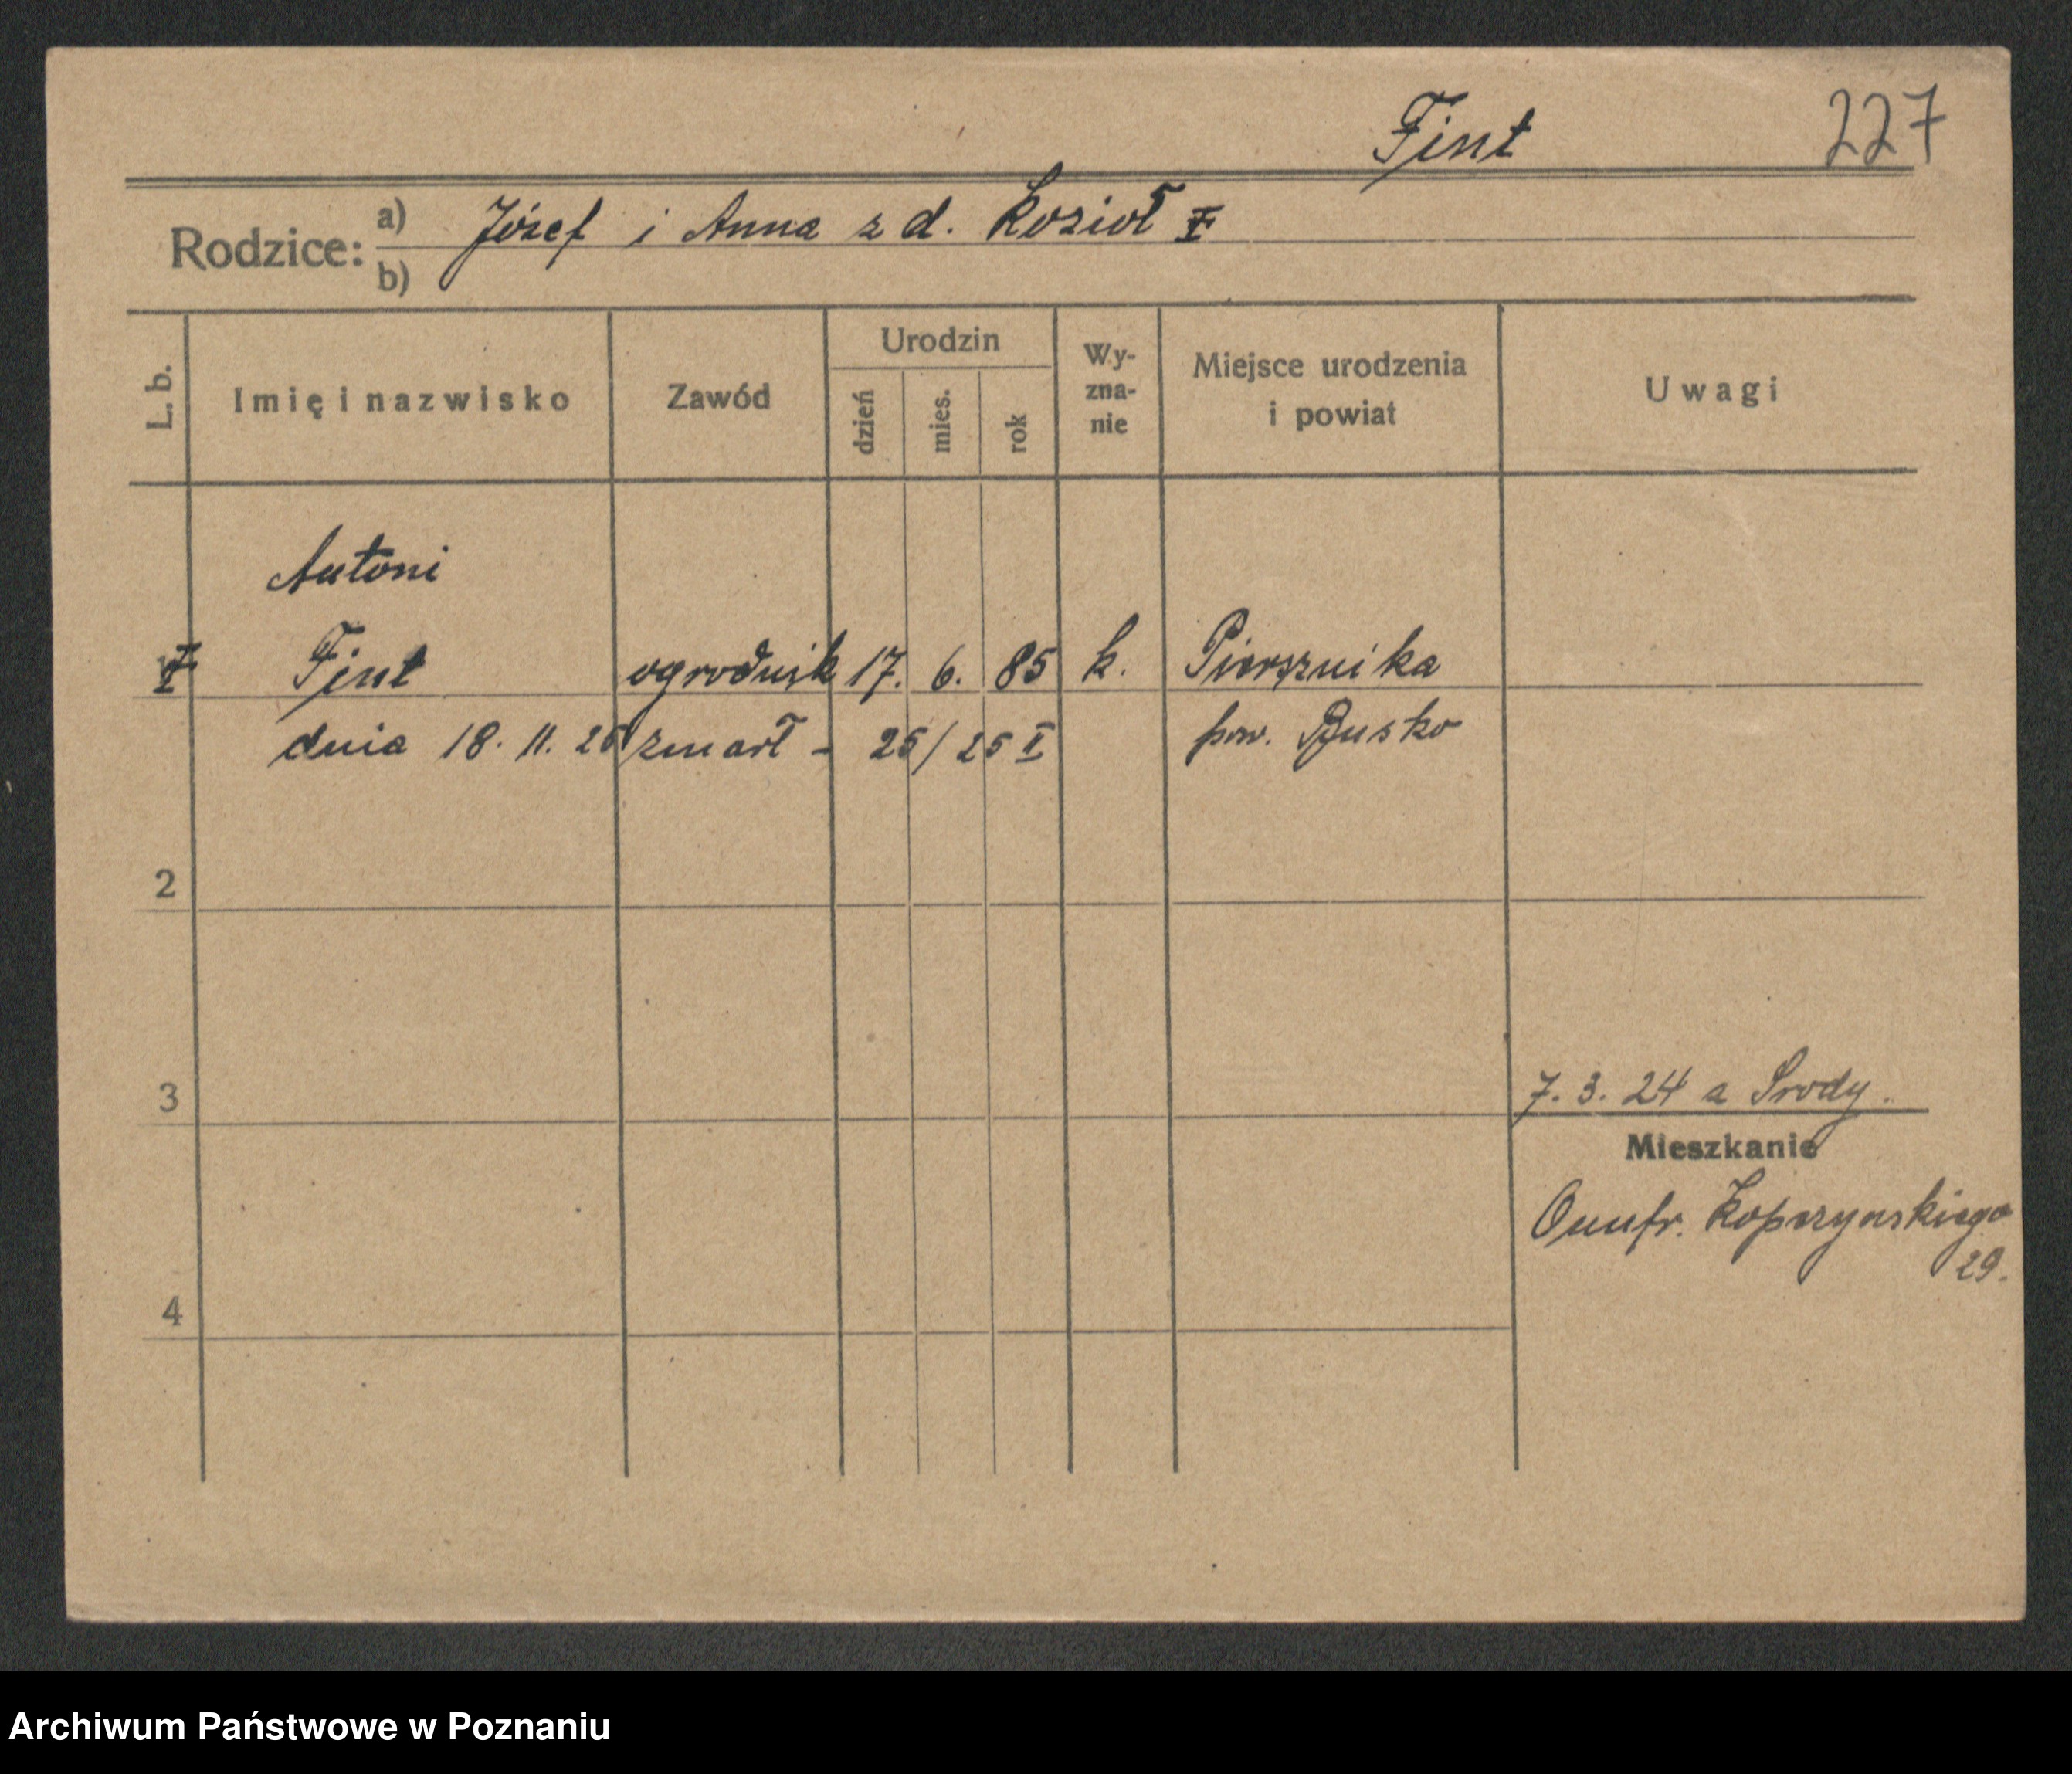 Fint 227
Rodzice: a) Józef i Anna z d. Kozioł I
b)
L. b. Imię i nazwisko Zawód Urodzin dzień mies. rok Wy-zna-nie Miejsce urodzenia i powiat Uwagi
Antoni
1 Fint ogrodnik 17. 6. 85 k. Piersznika
dnia 18. 11. 25 zmarł - 25/25 I pow. Busko
2
3
7. 3. 24 a Środy.
Mieszkanie
Onufr. Kopczynskiego
29.
4
Archiwum Państwowe w Poznaniu